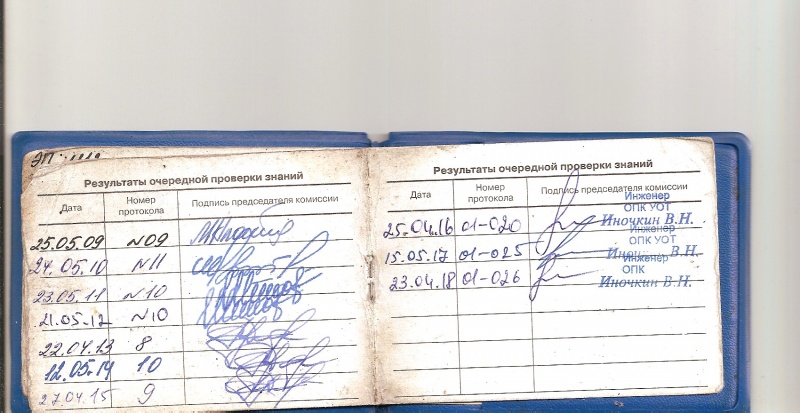 ЭП
Результаты очередной проверки знаний
Дата Номер протокола Подпись председателя комиссии
25.05.09 N09
24.05.10 N11
23.05.11 N10
21.05.12 N10
22.04.13 8
12.05.14 10
27.04.15 9
Результаты очередной проверки знаний
Дата Номер протокола Подпись председателя комиссии
Инженер
ОПК УОТ
25.04.16 01-020 Иночкин В.Н.
Инженер
ОПК УОТ
15.05.17 01-025 В.Н.
Инженер
ОПК
23.04.18 01-026 Иночкин В.Н.